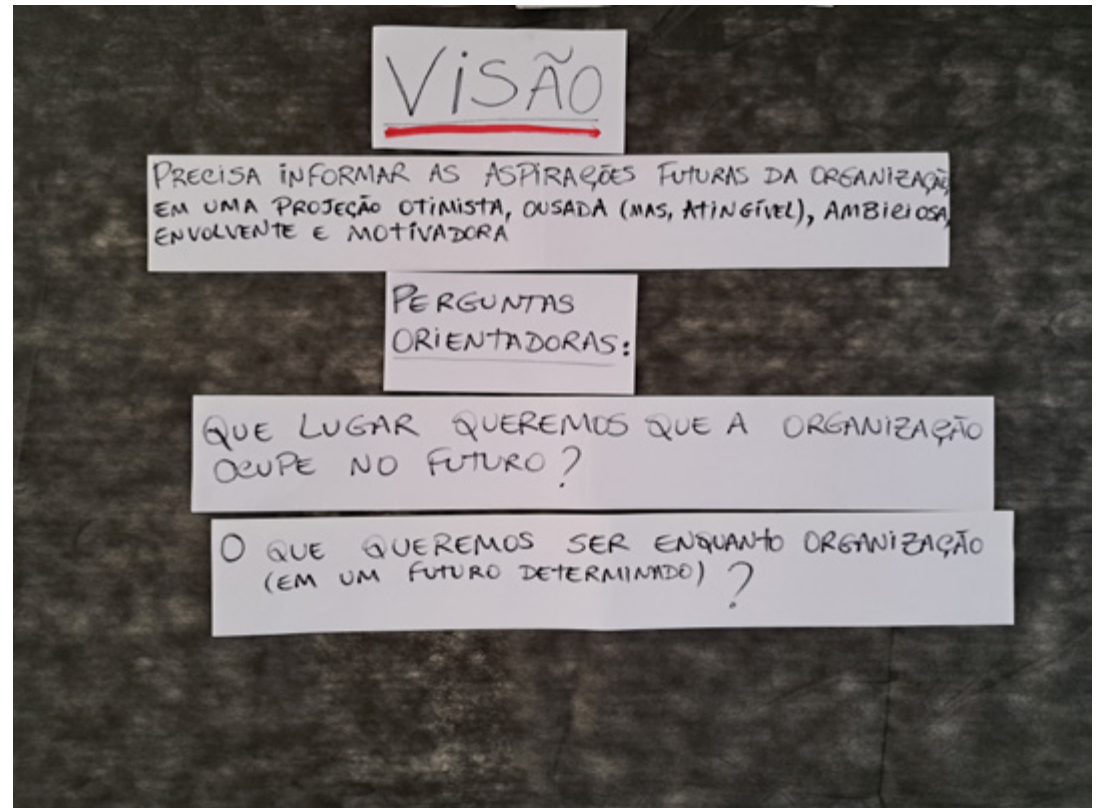 VISÃO
PRECISA INFORMAR AS ASPIRAÇÕES FUTURAS DA ORGANIZAÇÃO,
EM UMA PROJEÇÃO OTIMISTA, OUSADA (MAS, ATINGÍVEL), AMBICIOSA,
ENVOLVENTE E MOTIVADORA
PERGUNTAS
ORIENTADORAS:
QUE LUGAR QUEREMOS QUE A ORGANIZAÇÃO
OCUPE NO FUTURO?
O QUE QUEREMOS SER ENQUANTO ORGANIZAÇÃO
(EM UM FUTURO DETERMINADO)?